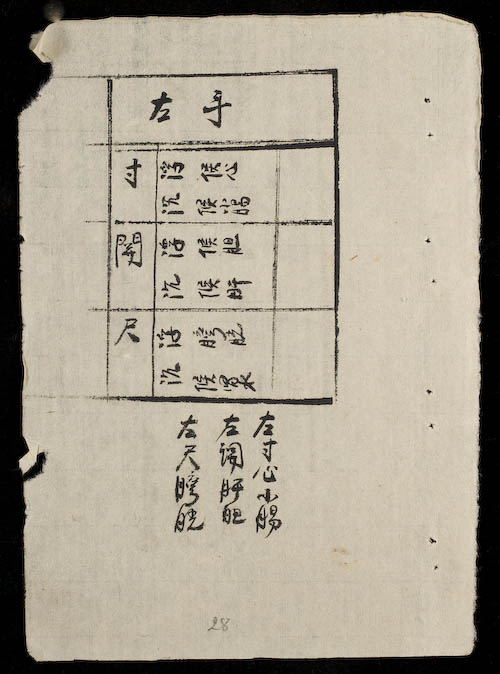 左手
寸
浮候心
沉候小腸
關
浮候胆
沉候肝
尺
浮膀胱
沉候
左寸心小腸
左関肝胆
左尺膀胱
28